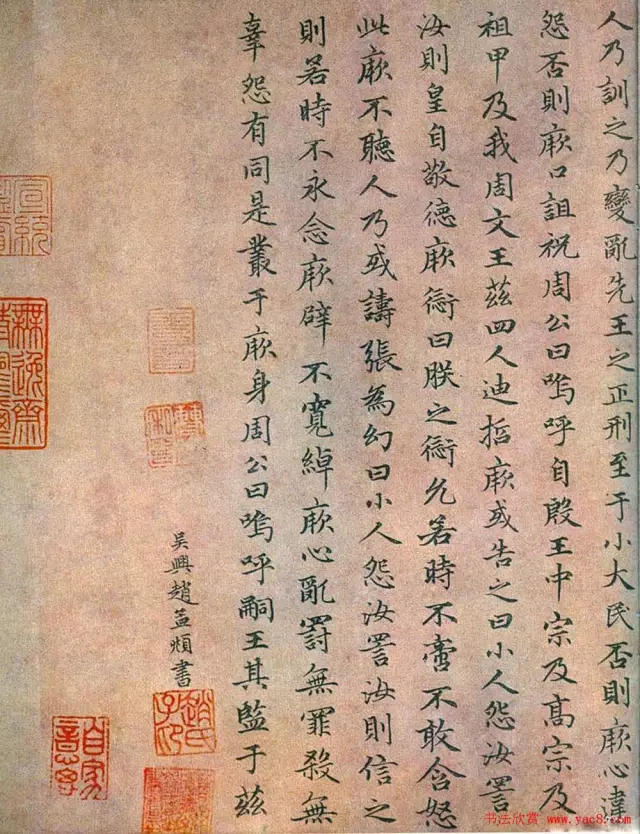 人乃訓之乃變亂先王之正刑至于小大民否則厥心違
怨否則厥口詛祝周公曰嗚呼自殷王中宗及高宗及
祖甲及我周文王茲四人迪哲厥或告之曰小人怨汝詈
汝則皇自敬德厥愆曰朕之愆允若時不啻不敢含怒
此厥不聽人乃或譸張為幻曰小人怨汝詈汝則信之
則若時不永念厥辟不寬綽厥心亂罰無罪殺無
辜怨有同是叢于厥身周公曰嗚呼嗣王其監于茲
吳興趙孟頫書
趙氏子昂
宣統
無逸齋
书法欣赏 www.yac8.com